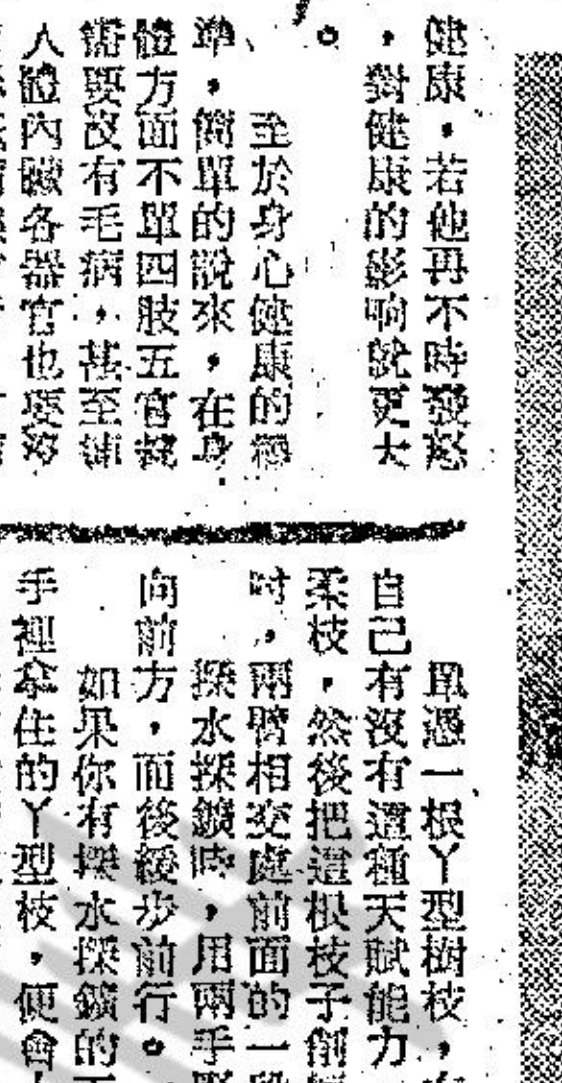 健康，若他再不時發怒
，對健康的影响就更大
。
至於身心健康的標
準，簡單的說來，在身
體方面不單四肢五官
需要沒有毛病，甚至連
人體內臟各器官也要
單憑一根丫型樹枝，
自己有沒有這種天賦能力，
柔枝，然後把這根枝子削
时，兩臂相交處前面的一段
探水探鑛時，用兩手
向前方，而後緩步前行。
如果你有探水探鑛的
手裡拿住的丫型枝，便會